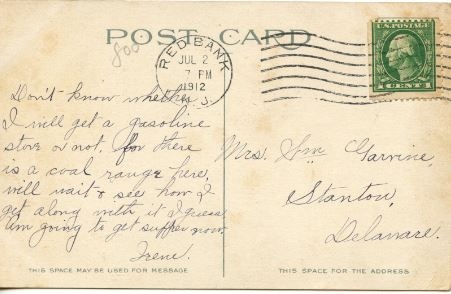 POST CARD
800
RED BANK
JUL 2
7 PM
1912
N. J.
U.S. POSTAGE
1 CENT 1
Don't know whether
I will get a gasoline
stove or not, for there
is a coal range here,
will wait & see how I
get along with it I guess
am going to get supper now.
Irene.
Mrs. Wm Garvine,
Stanton,
Delaware.
THIS SPACE MAY BE USED FOR MESSAGE
THIS SPACE FOR THE ADDRESS